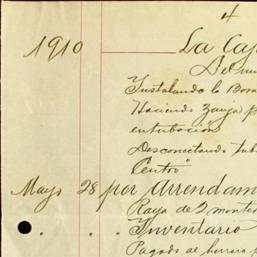 4
1910 La Caj
Del mu
Instalando la Bom
Haciendo Zanja p
entubación
Desconectando tub
Centro"
Mayo 28 por Arrendam
Raya de 2 monte
" . . Inventario
Pagado al burrero p